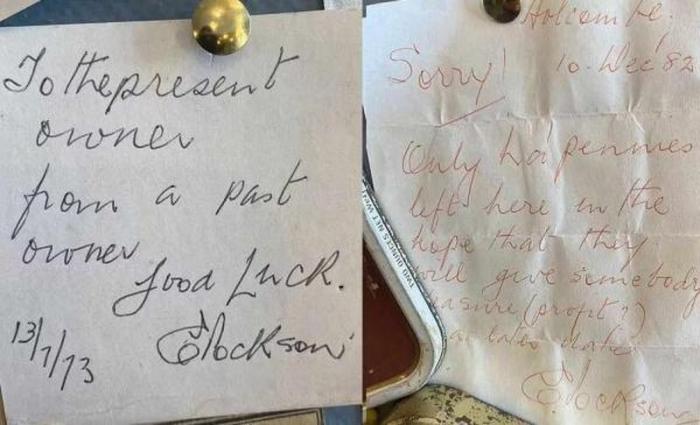 To the present
owner
from a past
owner
Good Luck.
13/7/73
Clockson
Holcombe.
Sorry! 10. Dec '82
Only ha'pennies
left here in the
hope that they
will give somebody
pleasure (profit?)
a later date
Clockson
TWO OUNCES NET WEIGHT